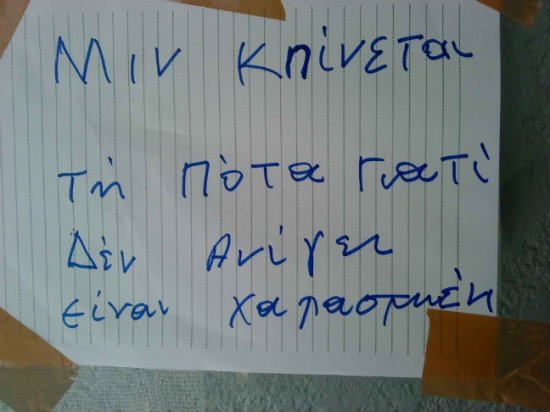 Μιν κπίνεται
τη πότα γιατί
Δέν Ανίγει
είναι χαπασμένη